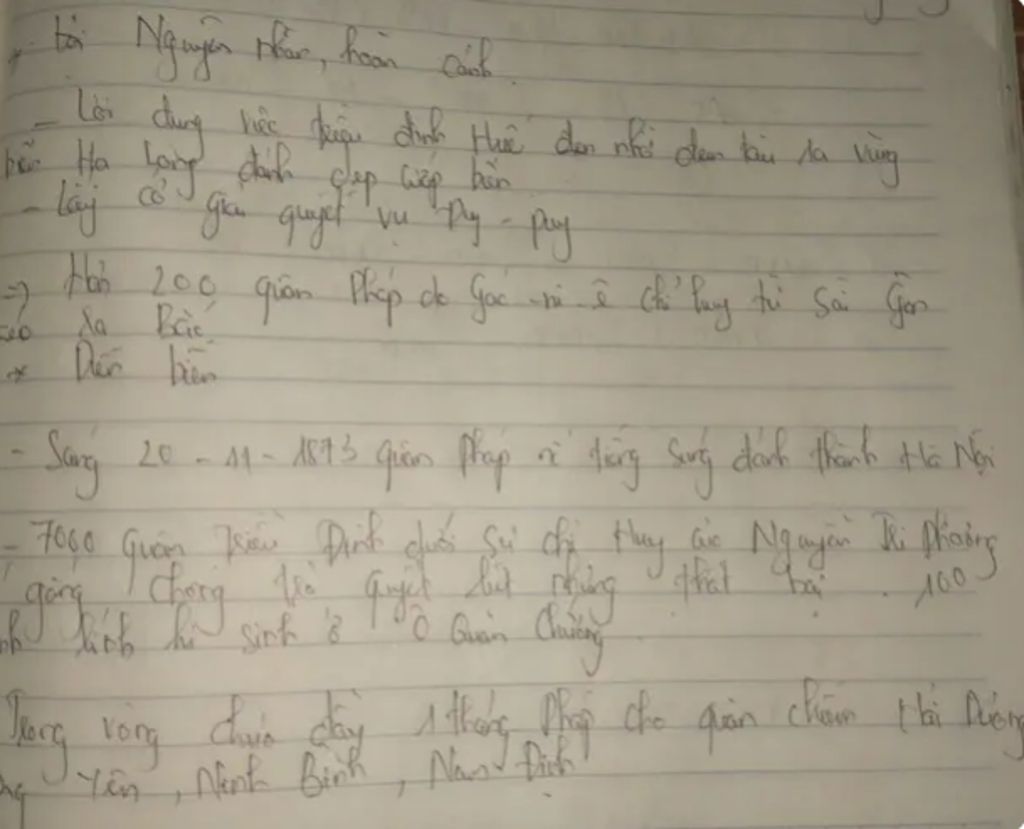 * Nguyên nhân, hoàn cảnh.
- Lợi dụng việc triều đình Huế đem tàu ra vùng
Hạ Long đánh dẹp cướp biển
- Lấy cớ giải quyết vụ Đuy - puy
=> Hơn 200 quân Pháp do Gác-ni-ê chỉ huy từ Sài Gòn
kéo ra Bắc
* Diễn biến
- Sáng 20 - 11 - 1873 quân Pháp nổ tiếng súng đánh thành Hà Nội
- 7000 Quân triều Đình dưới sự chỉ Huy các Nguyễn Tri Phương
gắng chống trả quyết liệt nhưng thất bại. 100
binh lính hi sinh ở Ô Quan Chưởng.
Trong vòng chưa đầy 1 tháng Pháp cho quân chiếm Hải Dương
Yên, Ninh Bình, Nam Định